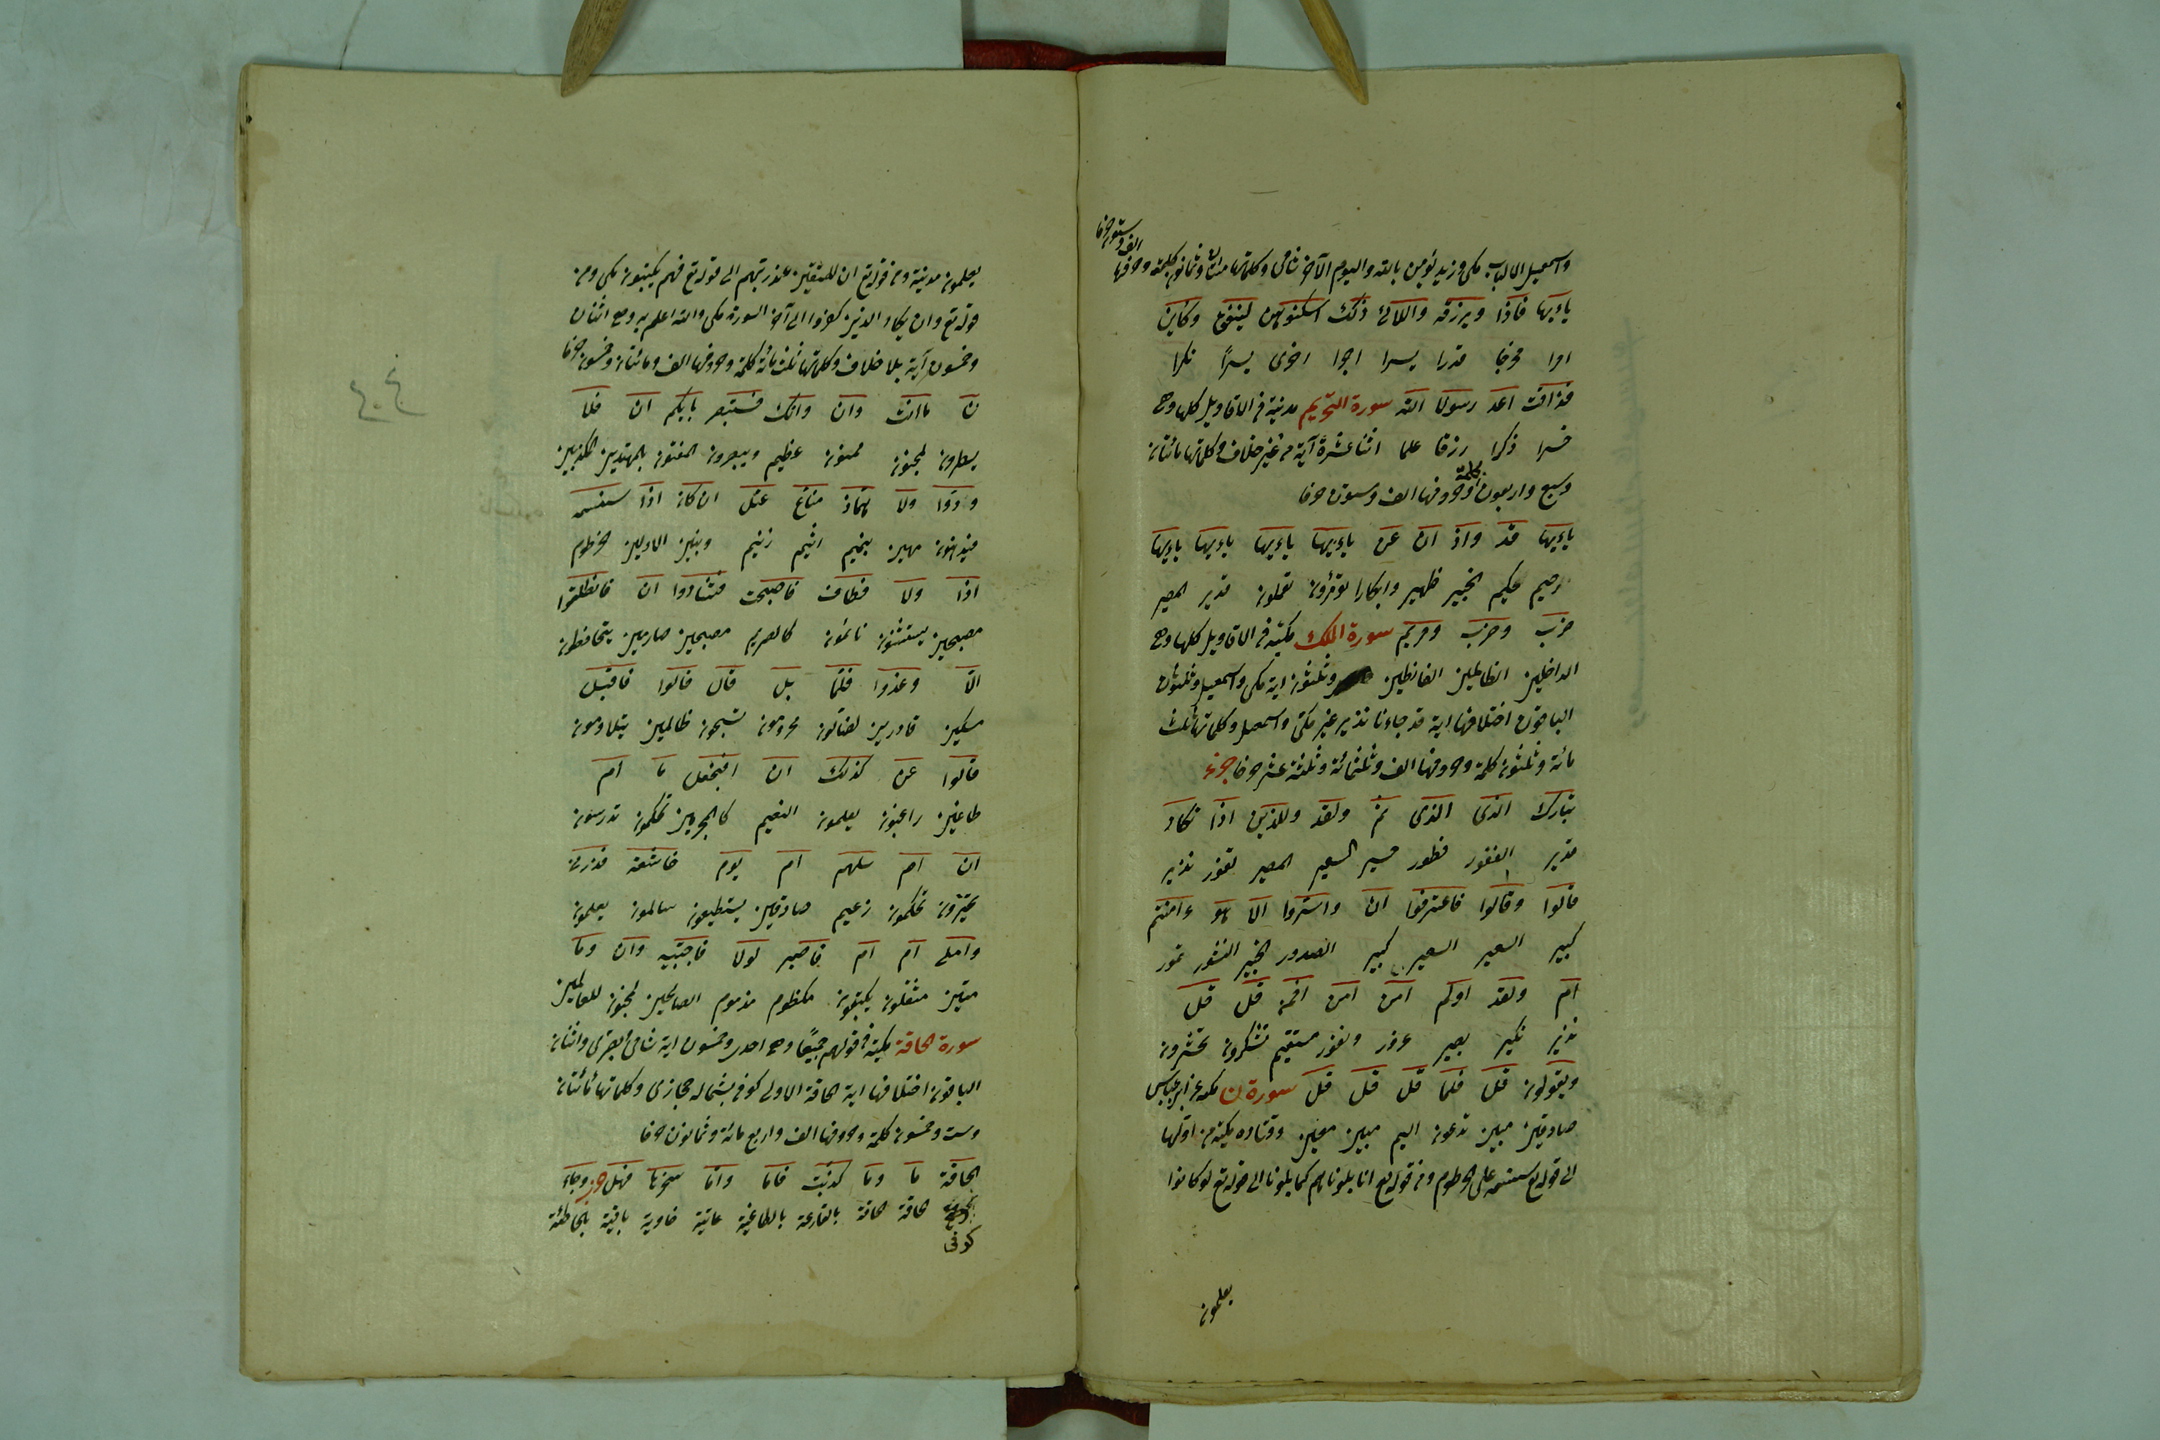 واسمعيل الالباب مكى وزيد يؤمن بالله واليوم الآخر شامى وكلماتها مائتان وثمانون كلمة وحروفها
الف وستون حرفا
ياءيها فاذا ويرزقه واللائى ذلك اسكنوهن لينفق وكاين
امرا مخرجا قدرا يسرا اجرا اخرى يسرًا نكرا
فذاقت اعد رسولا الله سورة التحريم مدنية فى الاقاويل كلها وهى
خسرا ذكرا رزقا علما اثنا عشرة آية من غير خلاف وكلماتها مائتان
وسبع واربعون كلمة وحروفها الف وستون حرفا
ياءيها قد واذ ان عن ياءيها ياءيها ياءيها ياءيها
رحيم حكيم الخبير ظهير وابكارا تعملون قدير المصير
ضرب وضرب ومريم سورة الملك مكية فى الاقاويل كلها وهى
الداخلين الظالمين القانتين وثلثون اية مكى واسمعيل وثلثون
الباقون اختلافها اية قد جاءنا نذير غير مكى واسمعيل وكلماتها ثلث
مائة وثلثون كلمة وحروفها الف وثلثمائة وثلثة عشر حرفا جزء
تبارك الذى الذى ثم ولقد وللذين اذا تكاد
قدير الغفور فطور حسير السعير المصير تفور نذير
قالوا وقالوا فاعترفوا ان واسروا الا هو ءامنتم
كبير السعير السعير كبير الصدور الخبير النشور تمور
ام ولقد اولم امن امن افمن قل قل
نذير نكير بصير غرور ونفور مستقيم تشكرون تحشرون
ويقولون قل فلما قل قل قل سورة ن مكية عن ابن عباس
صادقين مبين تدعون اليم مبين معين وقتاده مكية من اولها
الى قوله تع سنسمه على الخرطوم ومن قوله تع انا بلوناهم كما بلونا الى قوله تع لو كانوا
يعلمون
يعلمون مدنية ومن قوله تع ان للمتقين عند ربهم الى قوله تع فهم يكتبون مكى ومن
قوله تع وان يكاد الذين كفروا الى آخر السورة مكى والله اعلم به وهى اثنان
وخمسون آية بلا خلاف وكلماتها ثلث مائة كلمة وحروفها الف ومائتان وخمسون حرفا
ن ما انت وان وانك فستبصر بايكم ان فلا
يسطرون لمجنون ممنون عظيم ويبصرون المفتون بالمهتدين المكذبين
ودوا ولا هماز مناع عتل ان كان اذا سنسمه
فيدهنون مهين بنميم اثيم زنيم وبنين الاولين الخرطوم
اذا ولا فطاف فاصبحت فتنادوا ان فانطلقوا
مصبحين يستثنون نائمون كالصريم مصبحين صارمين يتخافتون
الا وغدوا فلما بل قال قالوا فاقبل
مسكين قادرين لضالون محرومون تسبحون ظالمين يتلاومون
قالوا عسى كذلك ان افنجعل ما ام
طاغين راغبون يعلمون النعيم كالمجرمين تحكمون تدرسون
ان ام سلهم ام يوم خاشعة فذرنى
تخيرون تحكمون زعيم صادقين يستطيعون سالمون يعلمون
واملى ام ام فاصبر لولا فاجتبيه وان وما
متين مثقلون يكتبون مكظوم مذموم الصالحين لمجنون للعالمين
سورة الحاقة مكية فى قولهم جميعًا وهى احدى وخمسون اية شامى بصرى واثنان
الباقون اختلافها اية الحاقة الاولى كوفى بشماله حجازى وكلماتها مائتان
وست وخمسون كلمة وحروفها الف واربع مائة وثمانون حرفا
الحاقة ما وما كذبت فاما واما سخرها فهل وجاء
الحاقة الحاقة بالقارعة بالطاغية عاتية خاوية باقية بالخاطئة
كوفى